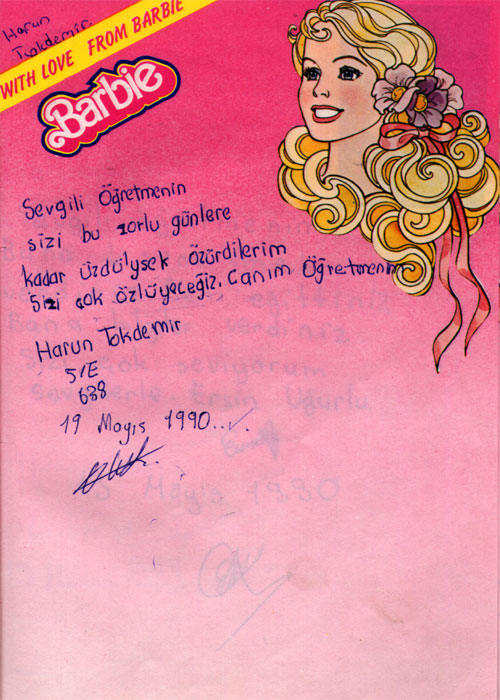 Harun
Tokdemir
WITH LOVE FROM BARBIE
Barbie
Sevgili Öğretmenin
sizi bu zorlu günlere
kadar üzdülysek özürdilerim
Sizi çok özlüyeceğiz. Canım Öğretmenim
Harun Tokdemir
5/E
638
19 Mayıs 1990...